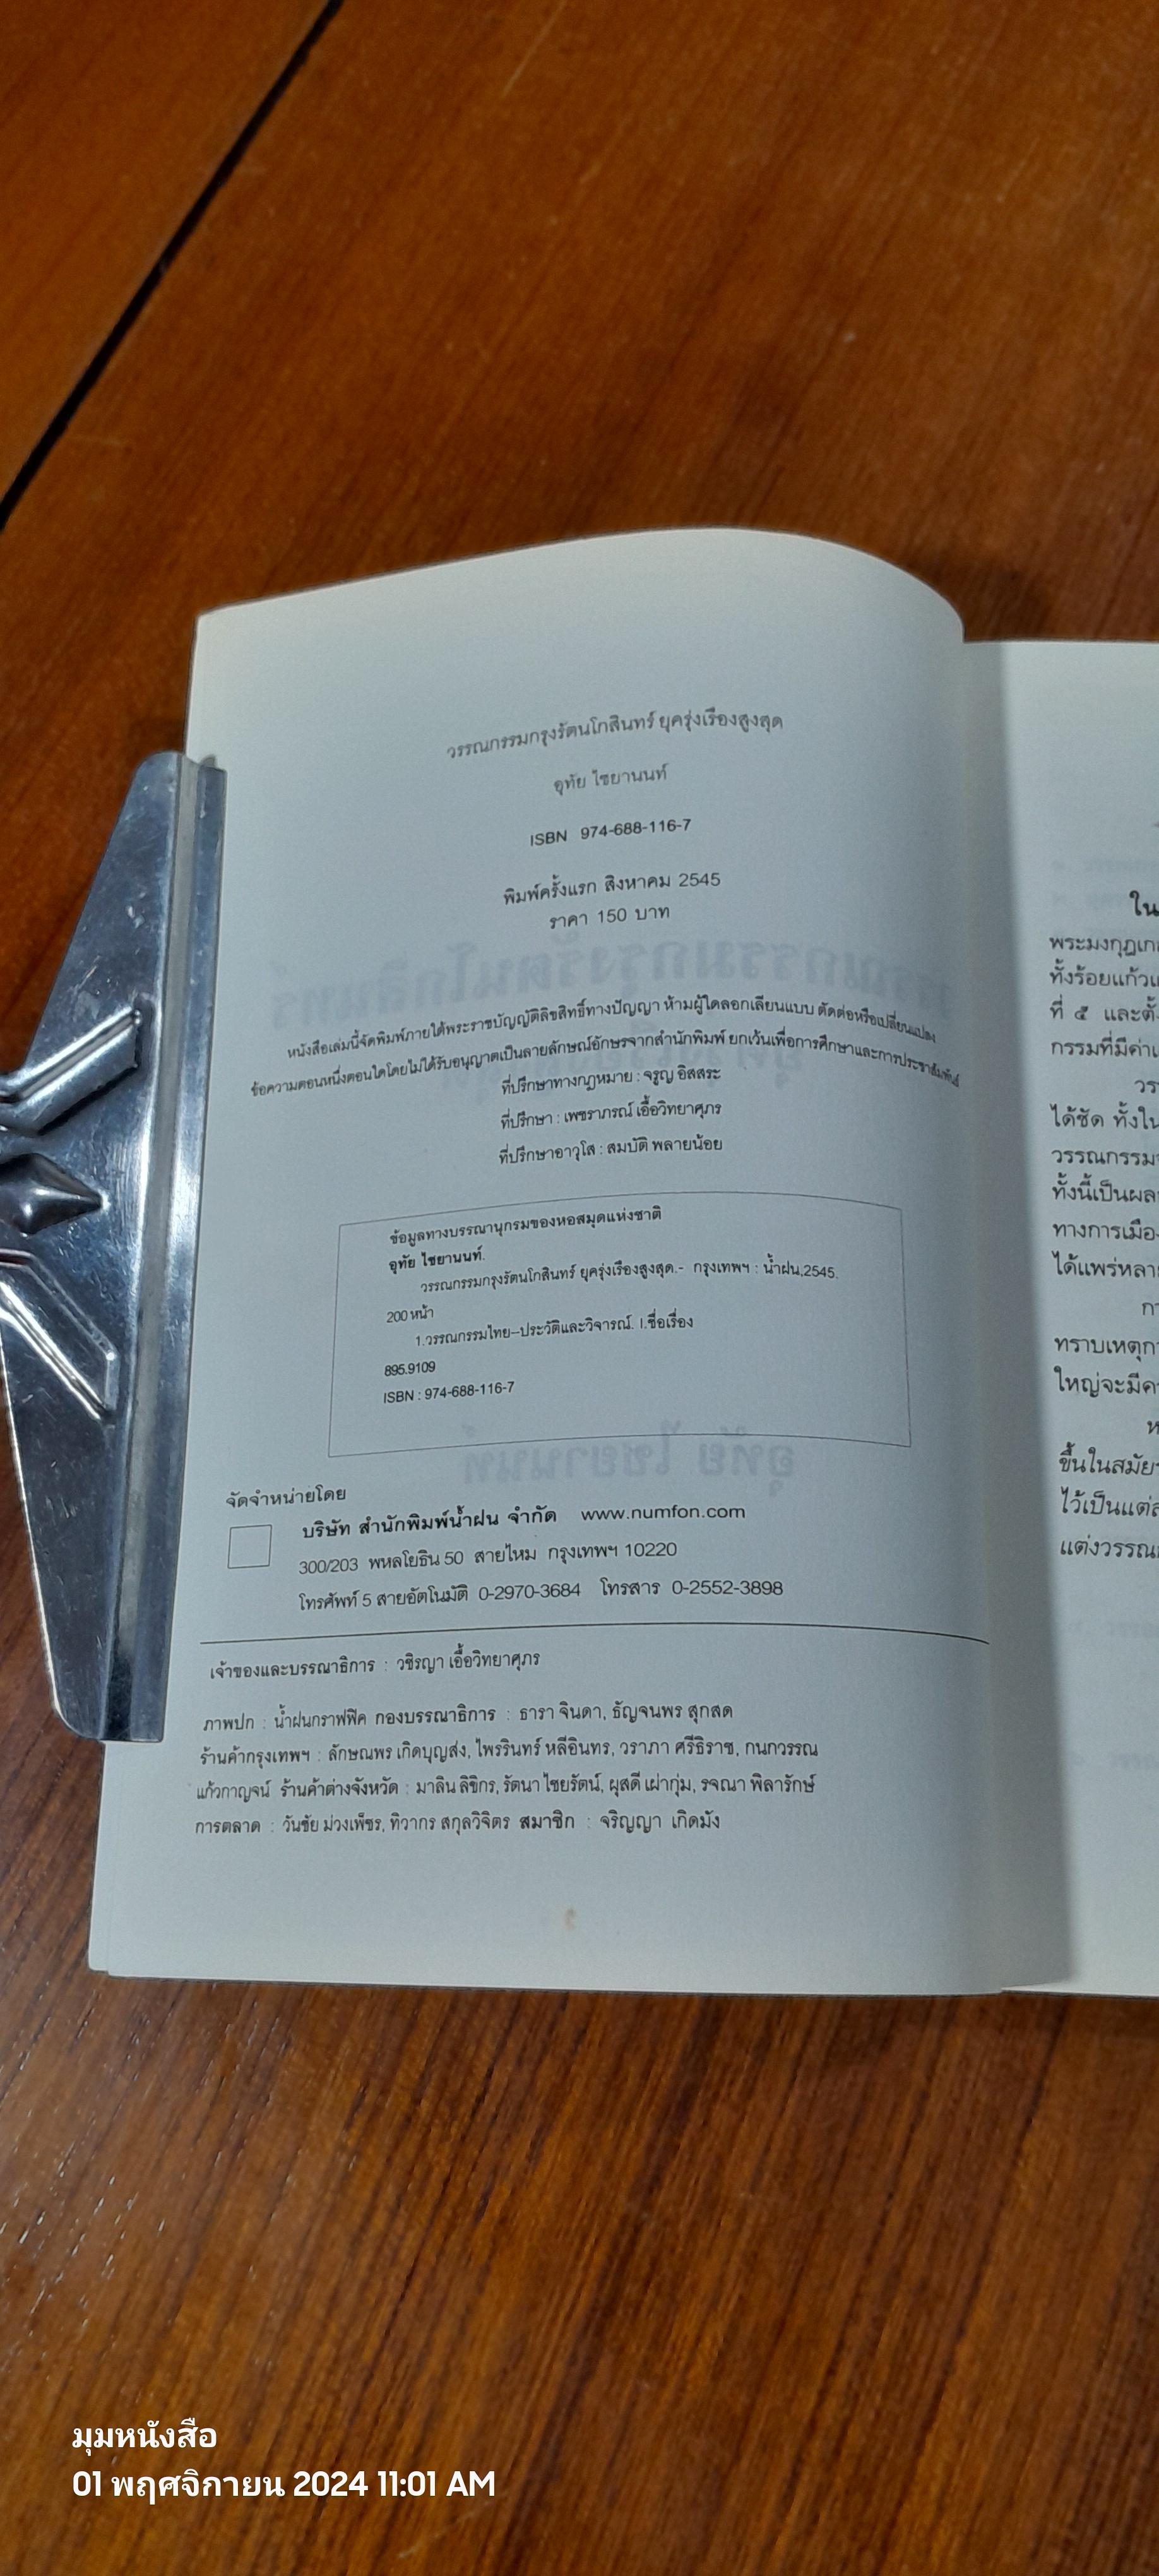 วรรณกรรมกรุงรัตนโกสินทร์ ยุครุ่งเรืองสูงสุด
อุทัย ไชยานนท์
ISBN 974-688-116-7
พิมพ์ครั้งแรก สิงหาคม 2545
ราคา 150 บาท
หนังสือเล่มนี้จัดพิมพ์ภายใต้พระราชบัญญัติลิขสิทธิ์ทางปัญญา ห้ามผู้ใดลอกเลียนแบบ ตัดต่อหรือเปลี่ยนแปลง
ข้อความตอนหนึ่งตอนใดโดยไม่ได้รับอนุญาตเป็นลายลักษณ์อักษรจากสำนักพิมพ์ ยกเว้นเพื่อการศึกษาและการประชาสัมพันธ์
ที่ปรึกษาทางกฎหมาย : จรูญ อิสสระ
ที่ปรึกษา : เพชราภรณ์ เอื้อวิทยาศุภร
ที่ปรึกษาอาวุโส : สมบัติ พลายน้อย
ข้อมูลทางบรรณานุกรมของหอสมุดแห่งชาติ
อุทัย ไชยานนท์.
วรรณกรรมกรุงรัตนโกสินทร์ ยุครุ่งเรืองสูงสุด.- กรุงเทพฯ : น้ำฝน,2545.
200 หน้า
1.วรรณกรรมไทย--ประวัติและวิจารณ์. I.ชื่อเรื่อง
895.9109
ISBN : 974-688-116-7
จัดจำหน่ายโดย
บริษัท สำนักพิมพ์น้ำฝน จำกัด www.numfon.com
300/203 พหลโยธิน 50 สายไหม กรุงเทพฯ 10220
โทรศัพท์ 5 สายอัตโนมัติ 0-2970-3684 โทรสาร 0-2552-3898
เจ้าของและบรรณาธิการ : วชิรญา เอื้อวิทยาศุภร
ภาพปก : น้ำฝนกราฟฟิค กองบรรณาธิการ : ธารา จินดา, ธัญจนพร สุกสด
ร้านค้ากรุงเทพฯ : ลักษณพร เกิดบุญส่ง, ไพรรินทร์ หลีอินทร, วราภา ศรีธิราช, กนกวรรณ
แก้วกาญจน์ ร้านค้าต่างจังหวัด : มาลิน ลิขิกร, รัตนา ไชยรัตน์, ผุสดี เผ่ากุ่ม, รจณา พิลารักษ์
การตลาด : วันชัย ม่วงเพ็ชร, ทิวากร สกุลวิจิตร สมาชิก : จริญญา เกิดมัง
ใน
พระมงกุฎเก
ทั้งร้อยแก้วแ
ที่ ๕ และตั้ง
กรรมที่มีค่าเ
วร
ได้ชัด ทั้งใน
วรรณกรรม
ทั้งนี้เป็นผล
ทางการเมือง
ได้แพร่หลาย
กา
ทราบเหตุกา
ใหญ่จะมีค
ห
ขึ้นในสมัย
ไว้เป็นแต่ล
แต่งวรรณ
มุมหนังสือ
01 พฤศจิกายน 2024 11:01 AM